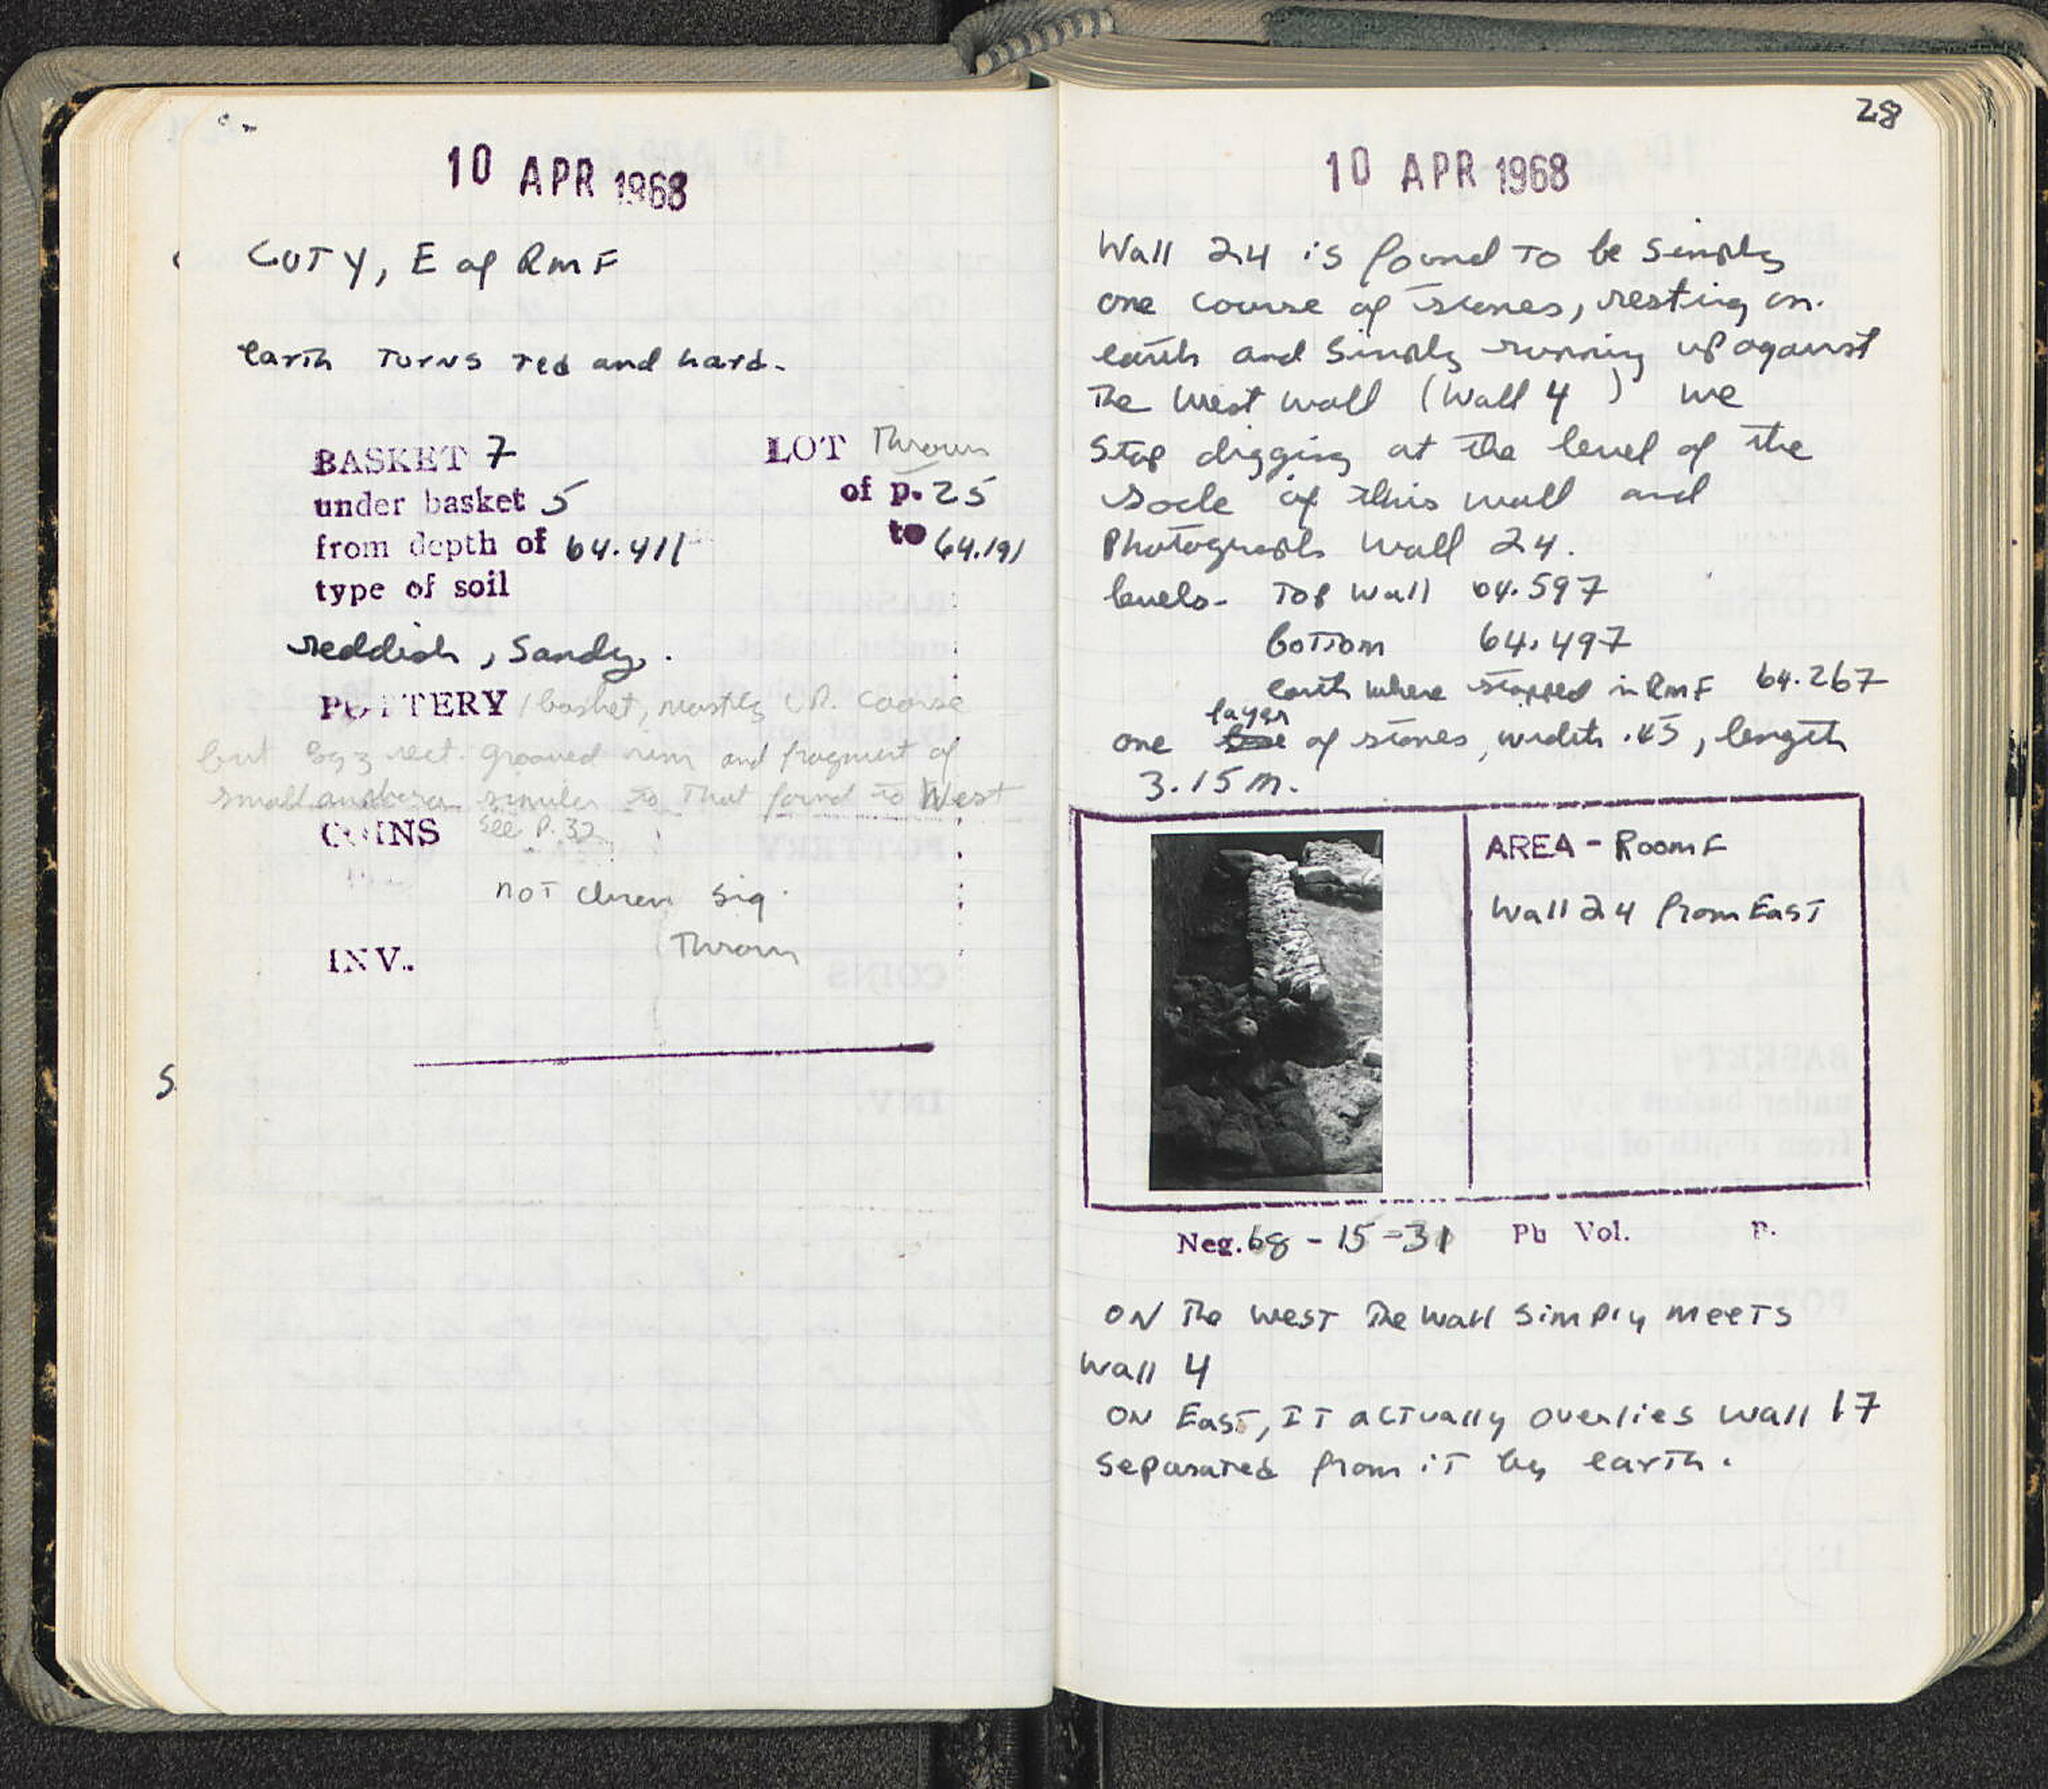 10 APR 1968
CUT Y, E of Rm F
earth turns red and hard.
BASKET 7 LOT Thrown
under basket 5 of p. 25
from depth of 64.411 to 64.191
type of soil
reddish, Sandy.
POTTERY 1 basket, mostly coarse
but Byz rect. grooved rim and fragment of
small similar to that found to West
COINS see p. 32
not chron sig.
Thrown
INV.
28
10 APR 1968
Wall 24 is found to be simply
one course of stones, resting on
earth and simply running up against
the West wall (Wall 4) we
stop digging at the level of the
socle of this wall and
photograph Wall 24.
levels - Top Wall 64.597
bottom 64.497
earth where stopped in Rm F 64.267
layer
one of stones, width .45, length
3.15 m.
AREA - Room F
Wall 24 from East
Neg. 68-15-31 Ph Vol. P.
ON the west the wall simply meets
wall 4
ON East, IT actually overlies wall 17
separated from it by earth.